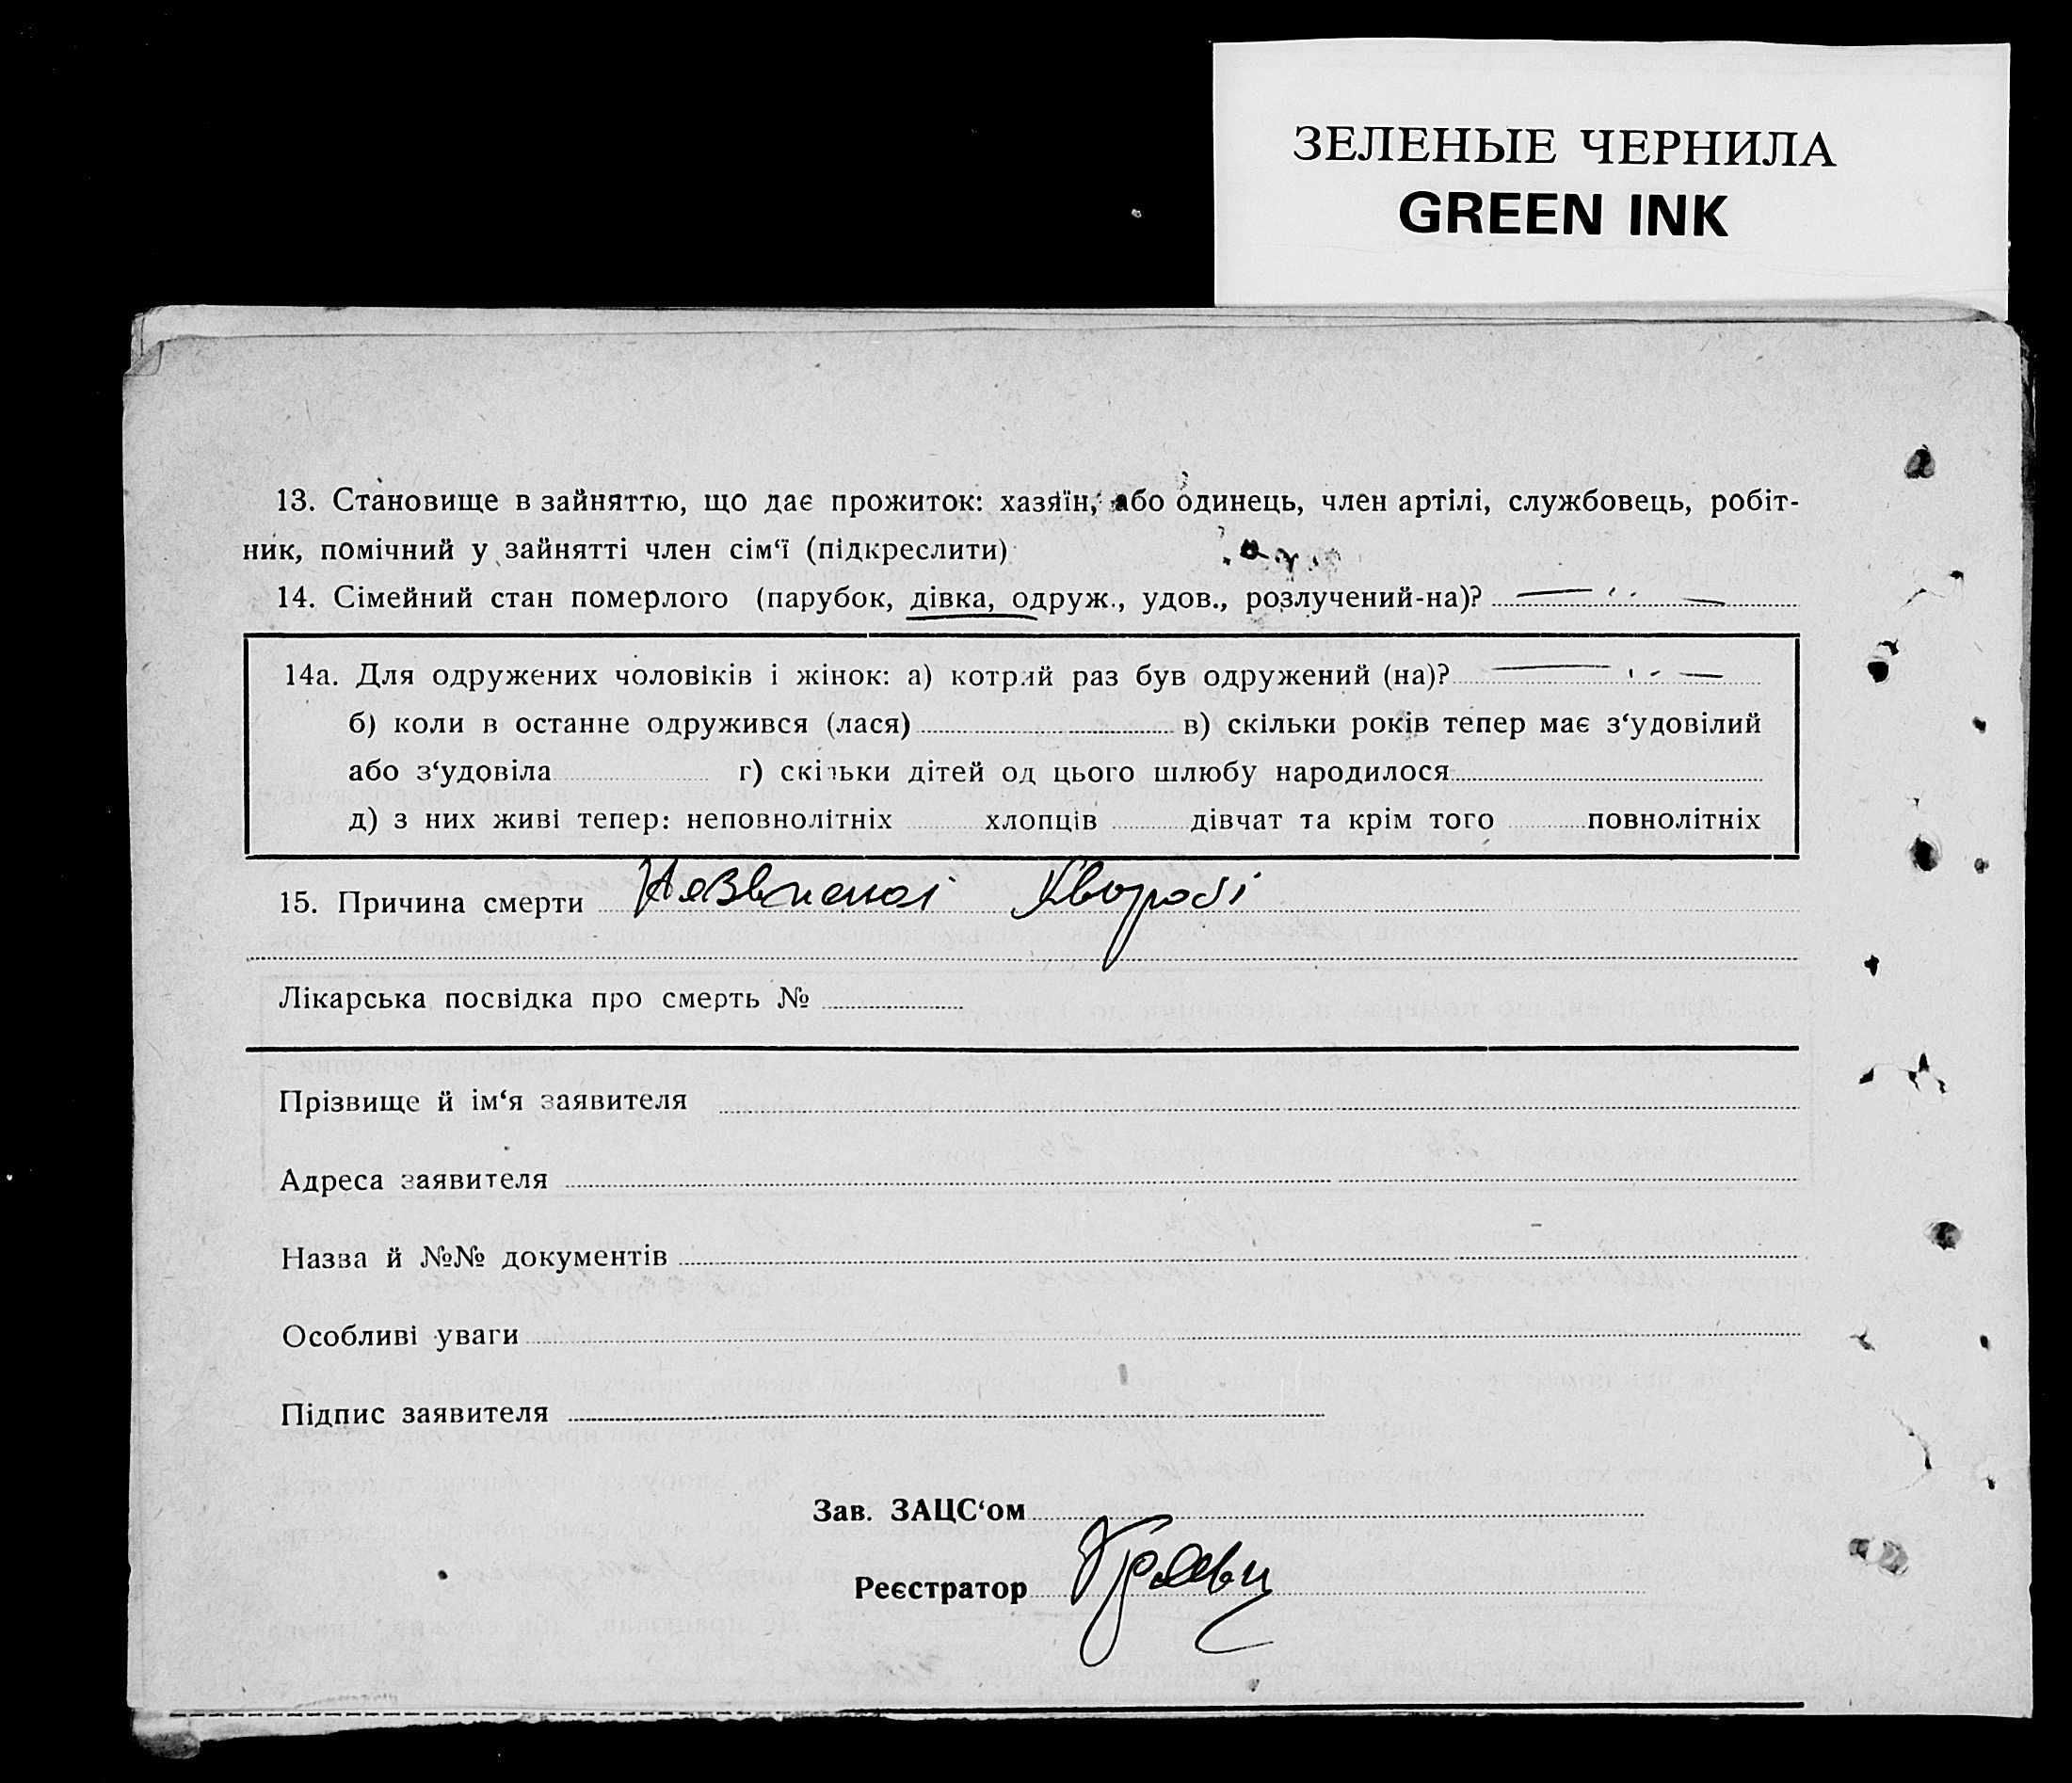 ЗЕЛЕНЫЕ ЧЕРНИЛА
GREEN INK
13. Становище в зайняттю, що дає прожиток: хазяїн, або одинець, член артілі, службовець, робіт-
ник, помічний у зайнятті член сім‘ї (підкреслити)
14. Сімейний стан померлого (парубок, дівка, одруж., удов., розлучений-на)?
14а. Для одружених чоловіків і жінок: а) котрий раз був одружений (на)?
б) коли в останне одружився (лася) в) скільки років тепер має з‘удовілий
або з‘удовіла г) скільки дітей од цього шлюбу народилося
д) з них живі тепер: неповнолітніх хлопців дівчат та крім того повнолітніх
15. Причина смерти Незвисної Хвороби
Лікарська посвідка про смерть №
Прізвище й ім‘я заявителя
Адреса заявителя
Назва й №№ документів
Особливі уваги
Підпис заявителя
Зав. ЗАЦС‘ом
Реєстратор